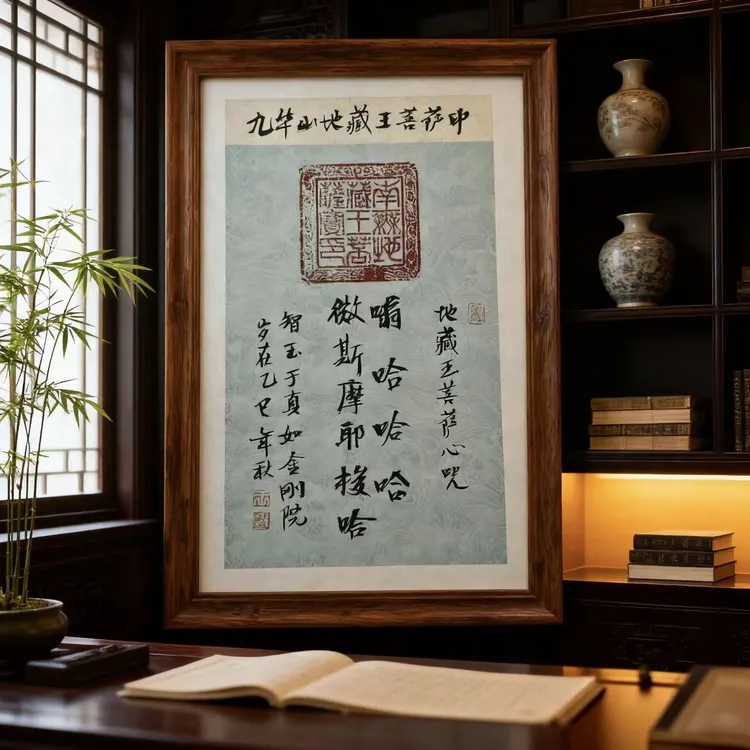 九华山地藏王菩萨印
南無地
藏王菩
薩寶印
地藏王菩萨心呪
嗡哈哈哈
微斯摩耶梭哈
智玉于真如金刚院
岁在乙巳年秋